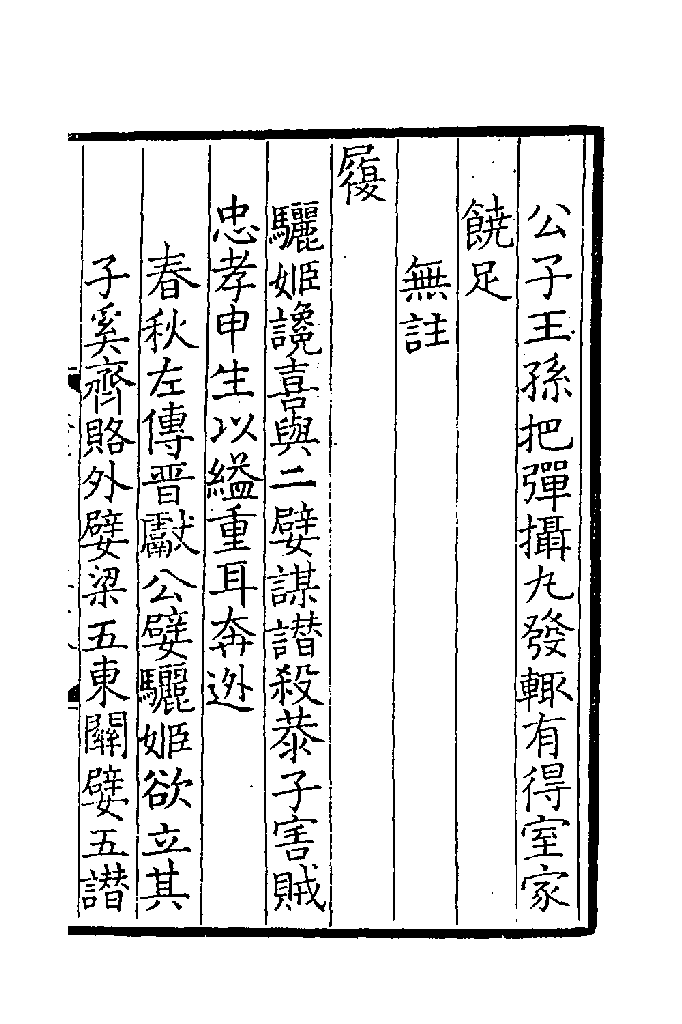 公子王孫把彈攝丸發輙有得室家
饒足
無註
履
驪姬讒喜與二嬖謀譖殺恭子害賊
忠孝申生以縊重耳奔逊
春秋左傳晋獻公嬖驪姬欲立其
子奚齊賂外嬖梁五東關嬖五譖